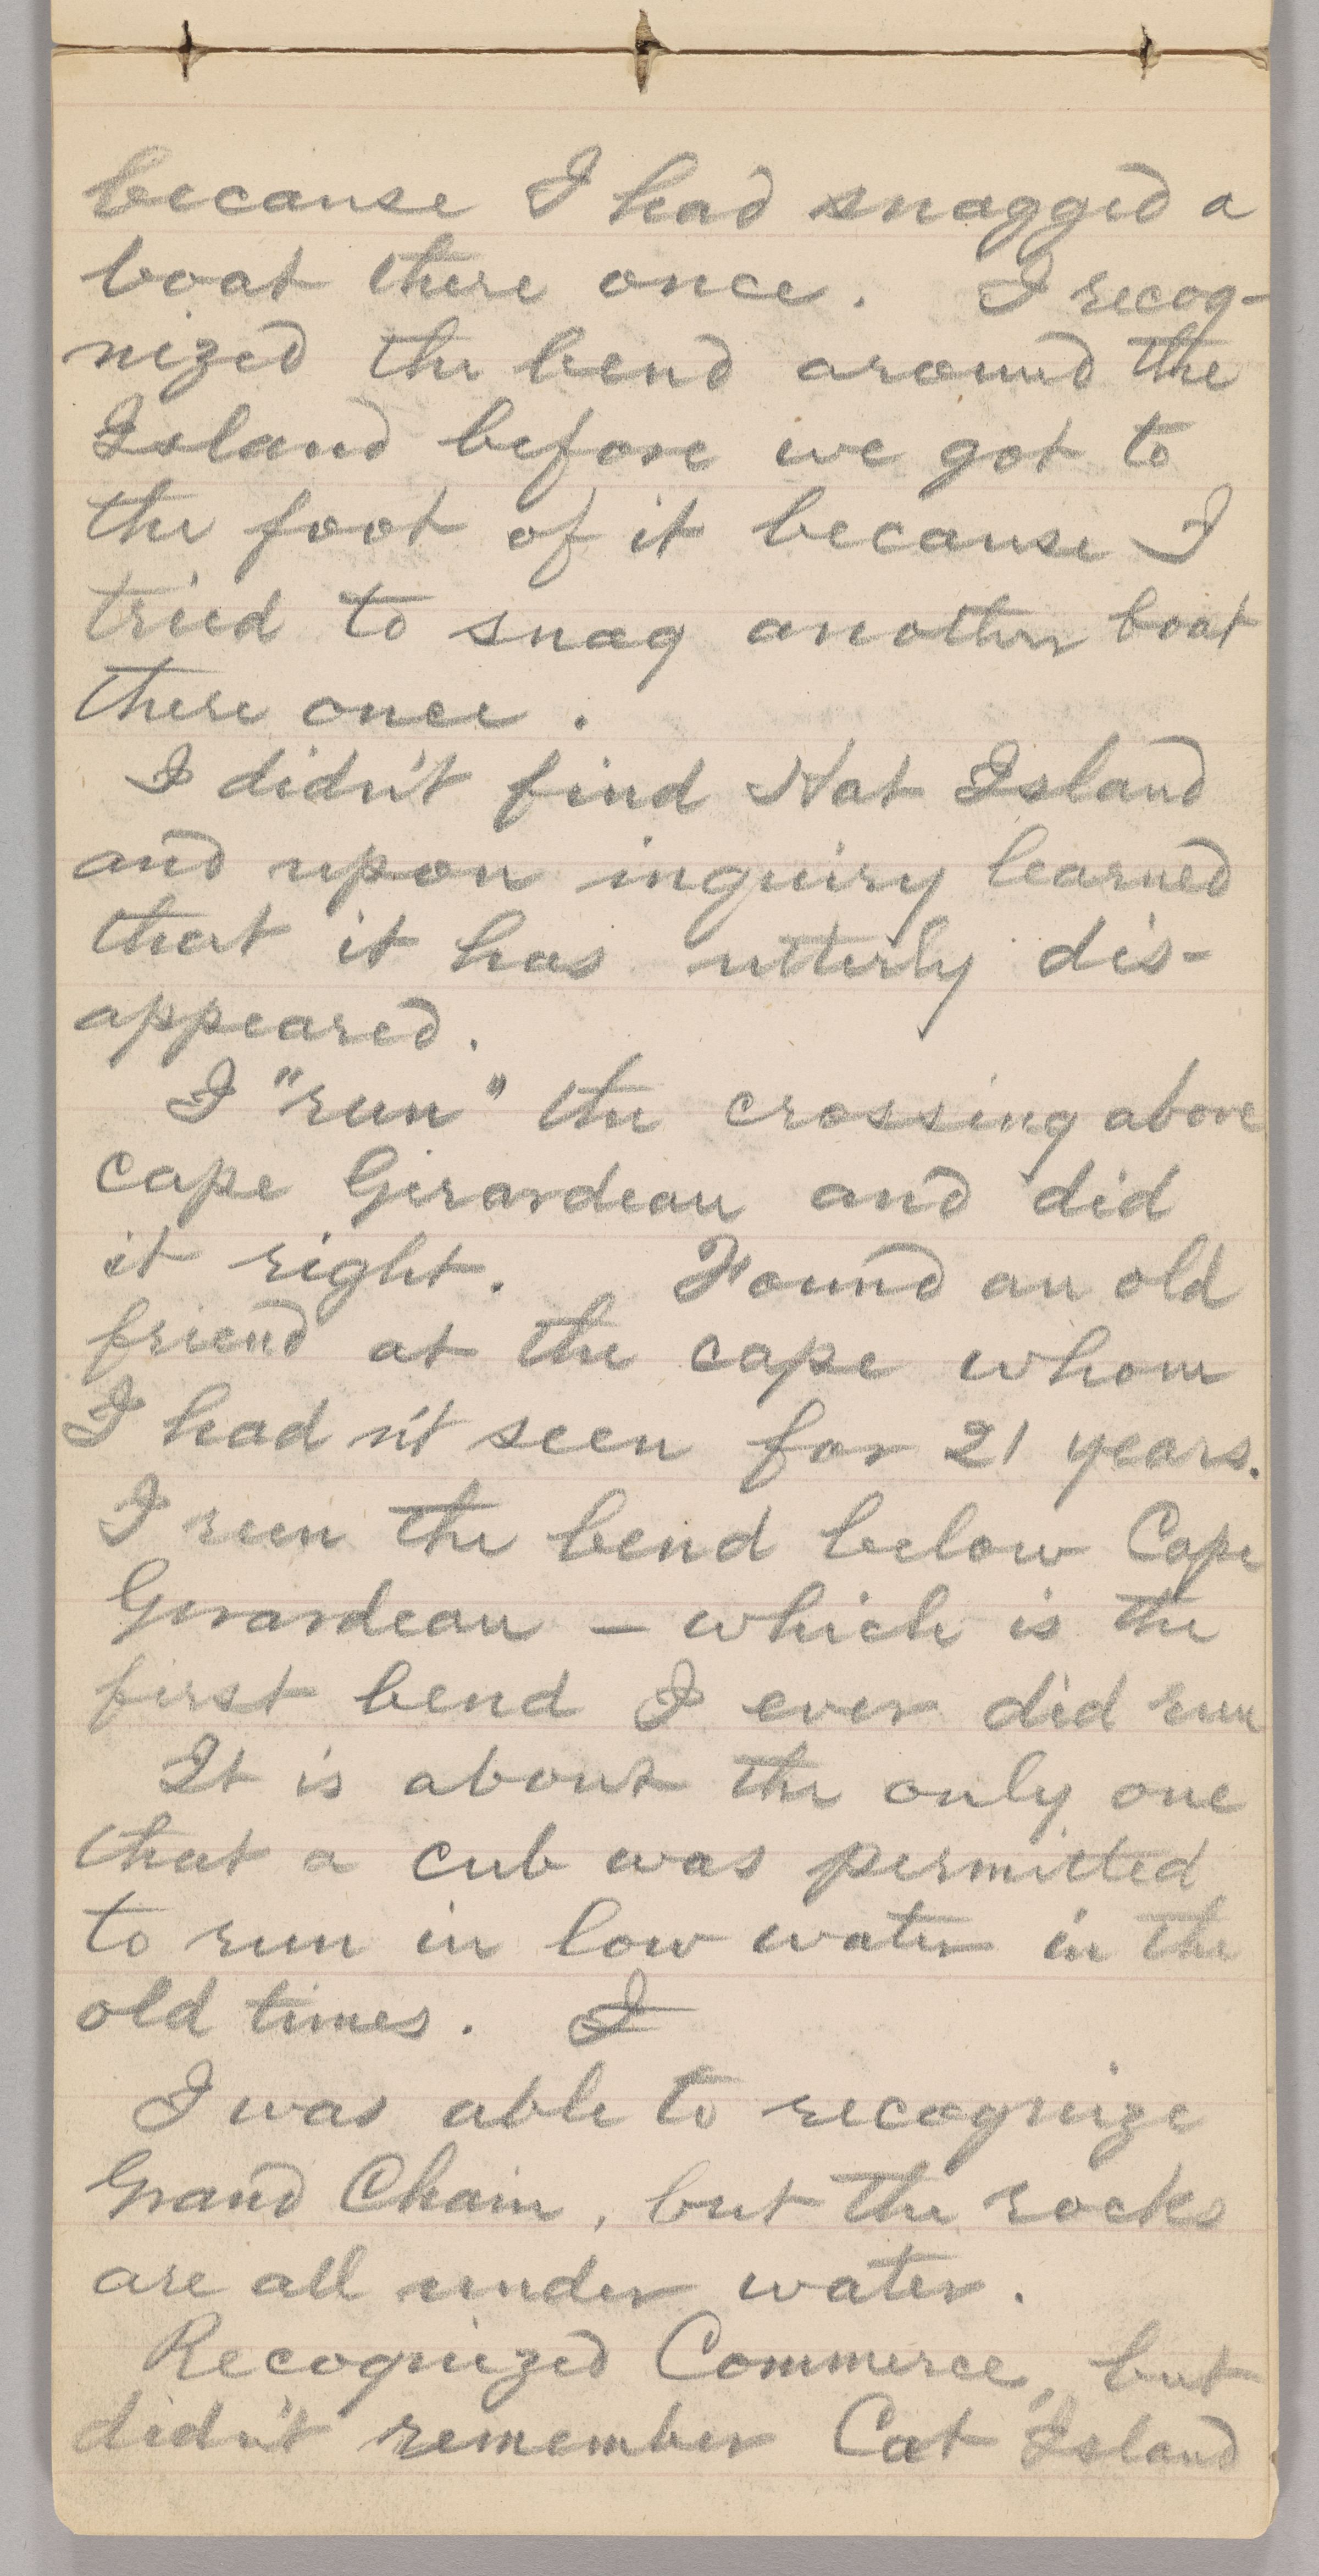 because I had snagged a
boat there once. I recog-
nized the bend around the
Island before we got to
the foot of it because I
tried to snag another boat
there once.
I didn't find Hat Island
and upon inquiry learned
that it has utterly dis-
appeared.
I "run" the crossing above
cape Girardeau and did
it right. Found an old
friend at the cape whom
I had n't seen for 21 years.
I run the bend below Cape
Girardeau – which is the
first bend I ever did run
It is about the only one
that a cub was permitted
to run in low water in the
old times. I
I was able to recognize
Grand Chain, but the rocks
are all under water.
Recognized Commerce, but
didn't remember Cat Island